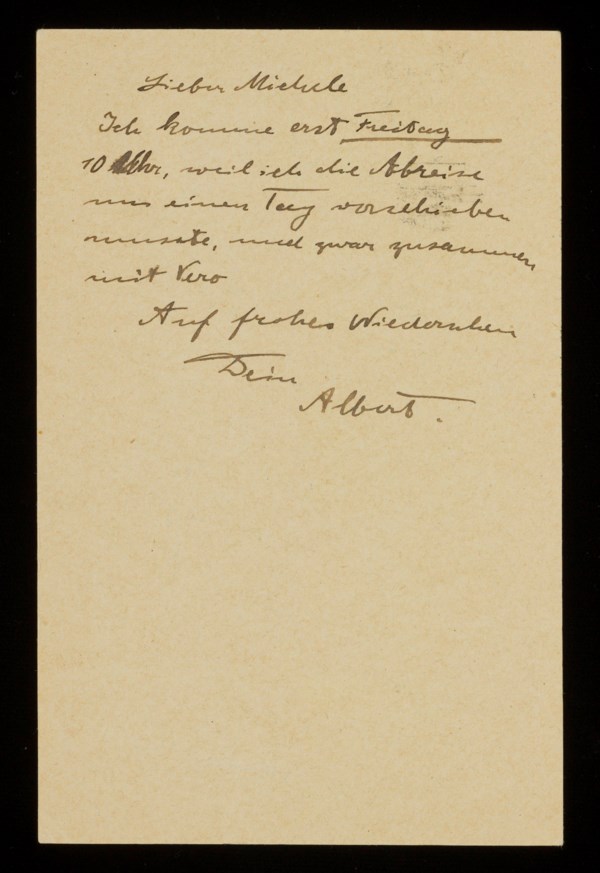 Lieber Michele
Ich komme erst Freitag
10 Uhr, weil ich die Abreise
um einen Tag verschieben
musste, und zwar zusammen
mit Vero
Auf frohes Wiedersehen
Dein
Albert.